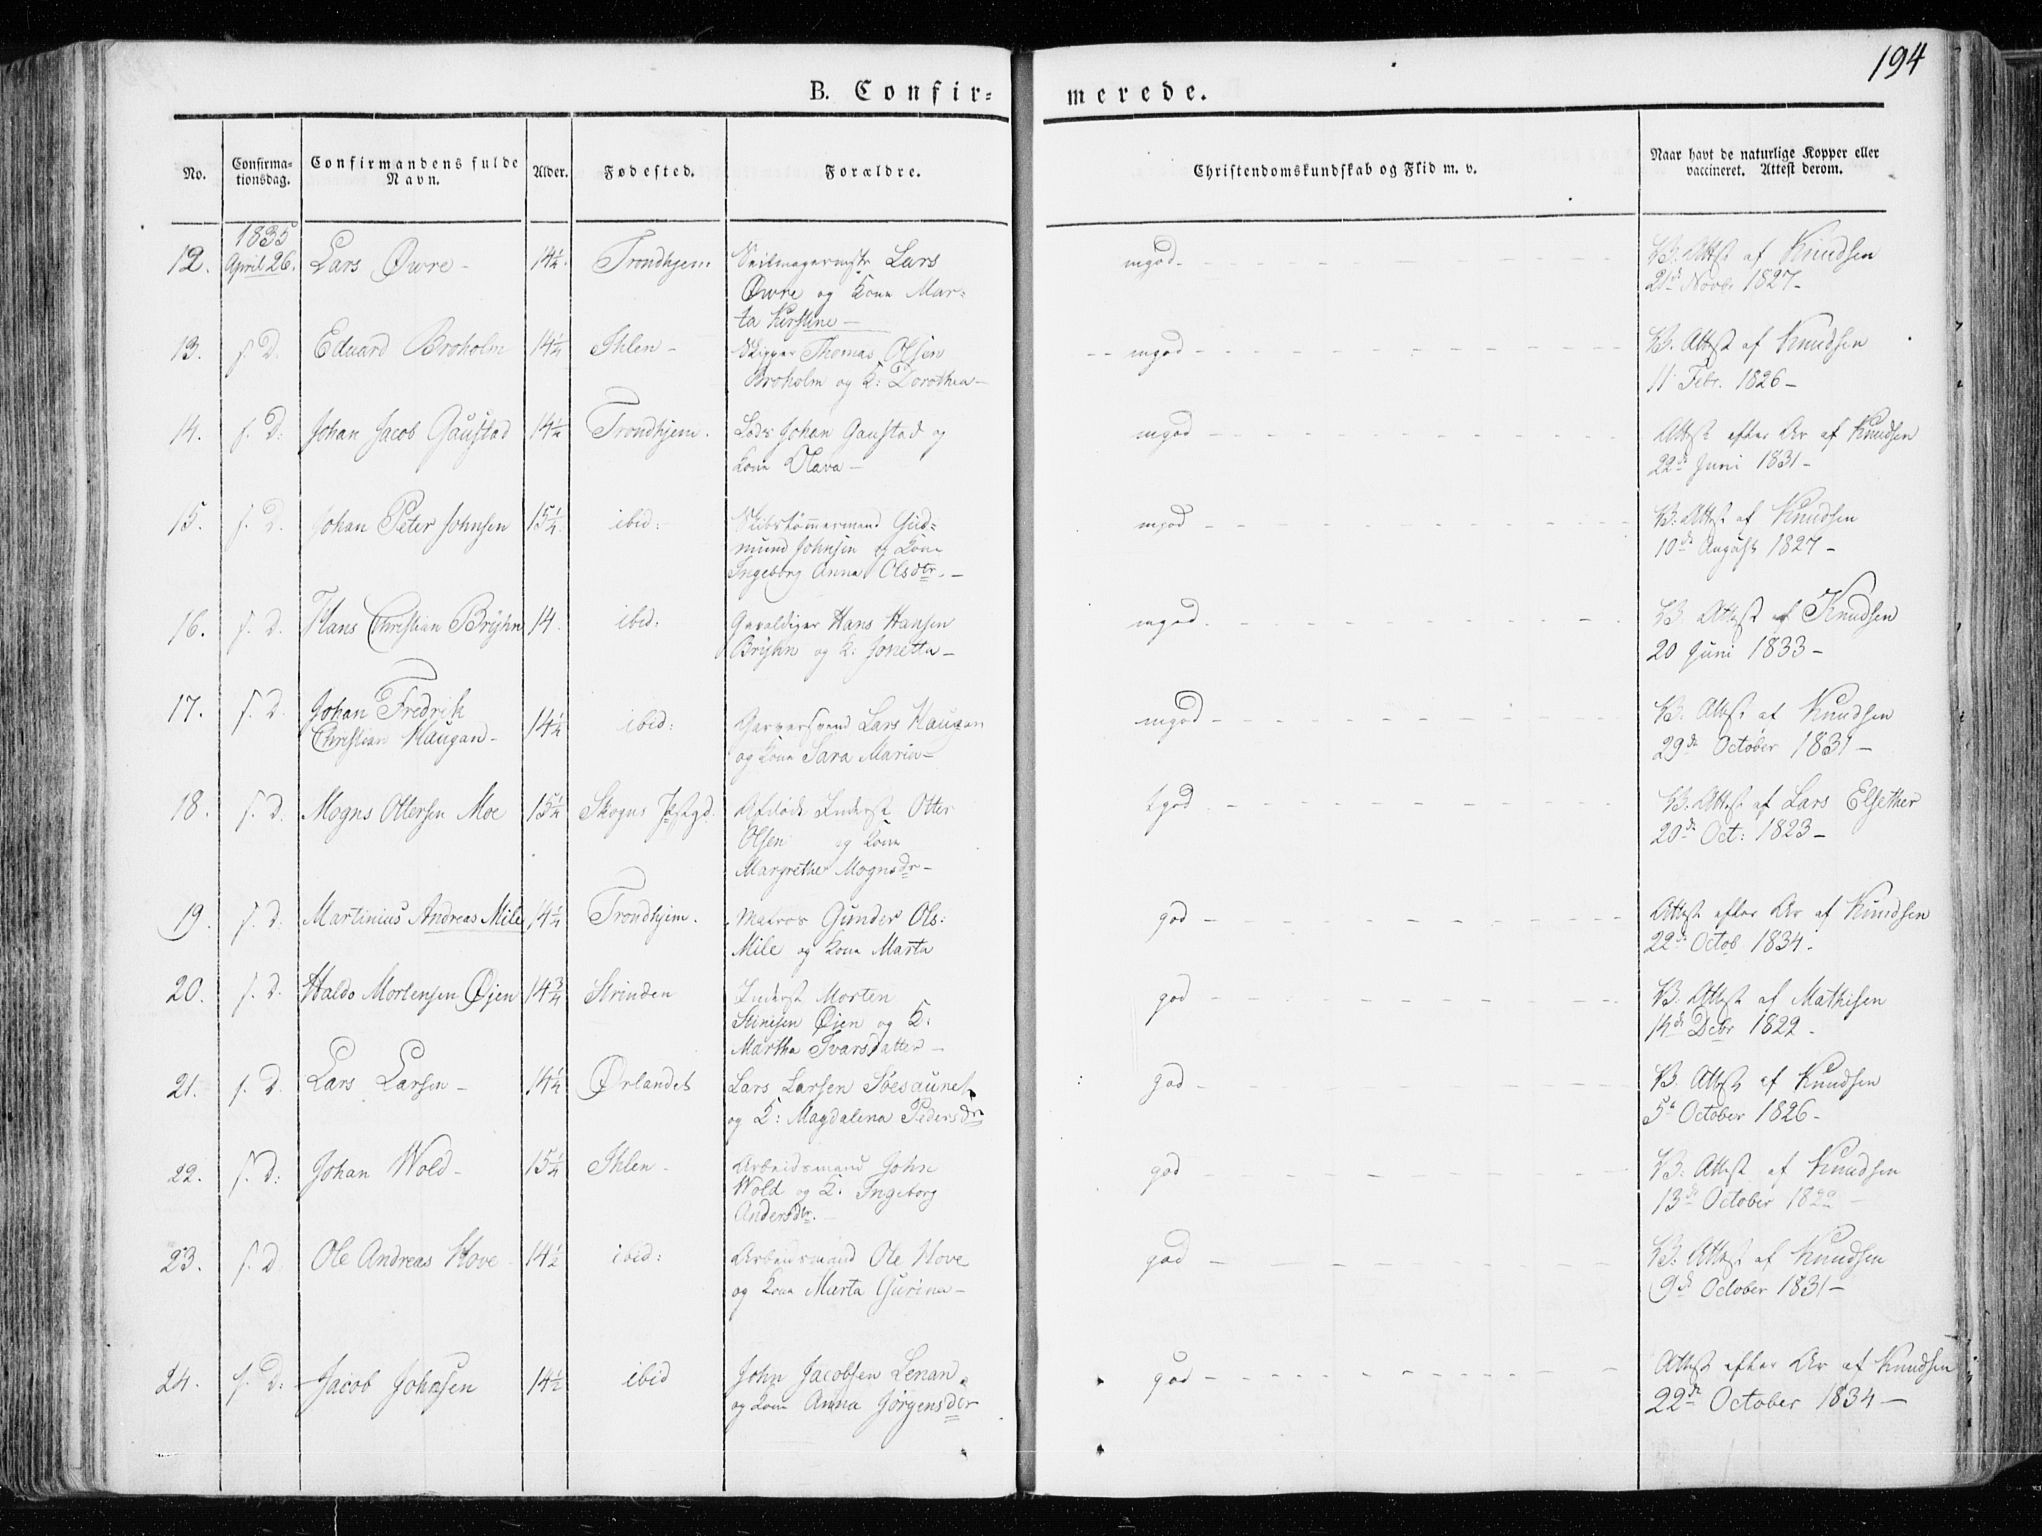 194
B. Confir-
merede.
No.
Confirma-
tionsdag.
Confirmandens fulde
Navn.
Alder.
Fødested.
Forældre.
Christendomskundskab og Flid m. v.
Naar havt de naturlige Kopper eller
vaccineret. Attest derom.
1835
12. April 26. Lars Øwre - 14½. Trondhjem. Lars
Øwre og Kone Mar-
ta Kirstine -
mgod. V: Attest af Knudsen
21d Novbr 1827 -
13. s. D. Eduard Broholm 14½ Ihlen - Skipper Thomas Olsen
Broholm og K: Dorothea -
mgod V. Attest af Knudsen
11 Febr. 1826 -
14. s. D: Johan Jacob Gaustad 14½ Trondhjem. Lods Johan Gaustad og
Kone Olava -
mgod Attest efter Ar af Knudsen
22d Juni 1831 -
15. s. D. Johan Peter Johnsen 15¼ ibid: Skibstømmermand Gud-
mund Johnsen og Kone
Ingeborg Anna Olsdtr. -
mgod V: Attest af Knudsen
10de August 1827 -
16. s. D. Hans Christian Brÿhn 14. ibid: Hans Hansen
Brÿhn og K: Jonetta -
mgod V. Attest af Knudsen
20 Juni 1833 -
17. s. D. Johan Fredrik
Christian Haugan - 14½ ibid: Garversvend Lars Haugan
og Kone Sara Maria -
mgod V: Attest af Knudsen
29de October 1831 -
18. s. D. Mogns Ottersen Moe 15½ Skogns Pstgd. Afdøde Inderst Otter
Olsen og Kone
Margrethe Mognsdr -
tgod V: Attest af Lars Elsether
20de Oct: 1823 -
19. s. D. Martinius Andreas Mile 14½ Trondhjem. Matros Gunder Ols:
Mile og Kone Marta
god Attest efter Ar af Knudsen
22de Octob 1834.
20. s. D. Haldo Mortensen Øjen 14¾ Strinden Inderst Morten
Øjen og K:
Martha Ivarsdatter -
god V: Attest af Mathisen
14de Debr 1822 -
21. s. D. Lars Larsen - 14½ Ørlandet Lars Larsen
og K: Magdalena Pedersdr
god V. Attest af Knudsen
5te October 1826 -
22. s. D: Johan Wold - 15¼ Ihlen - Arbeidsmand John
Wold og K. Ingeborg
Andersdtr. -
god V: Attest af Knudsen
13de October 1822 -
23. s. D. Ole Andreas Hove 14½ ibid: Arbeidsmand Ole Hove
og Kone Marta Gurina -
god V: Attest af Knudsen
9de October 1831 -
24. s. D: Jacob Johnsen 14½ ibid John Jacobsen Lenan
og Kone Anna Jørgensdtr
god Attest efter Ar af Knudsen
22de October 1834 -